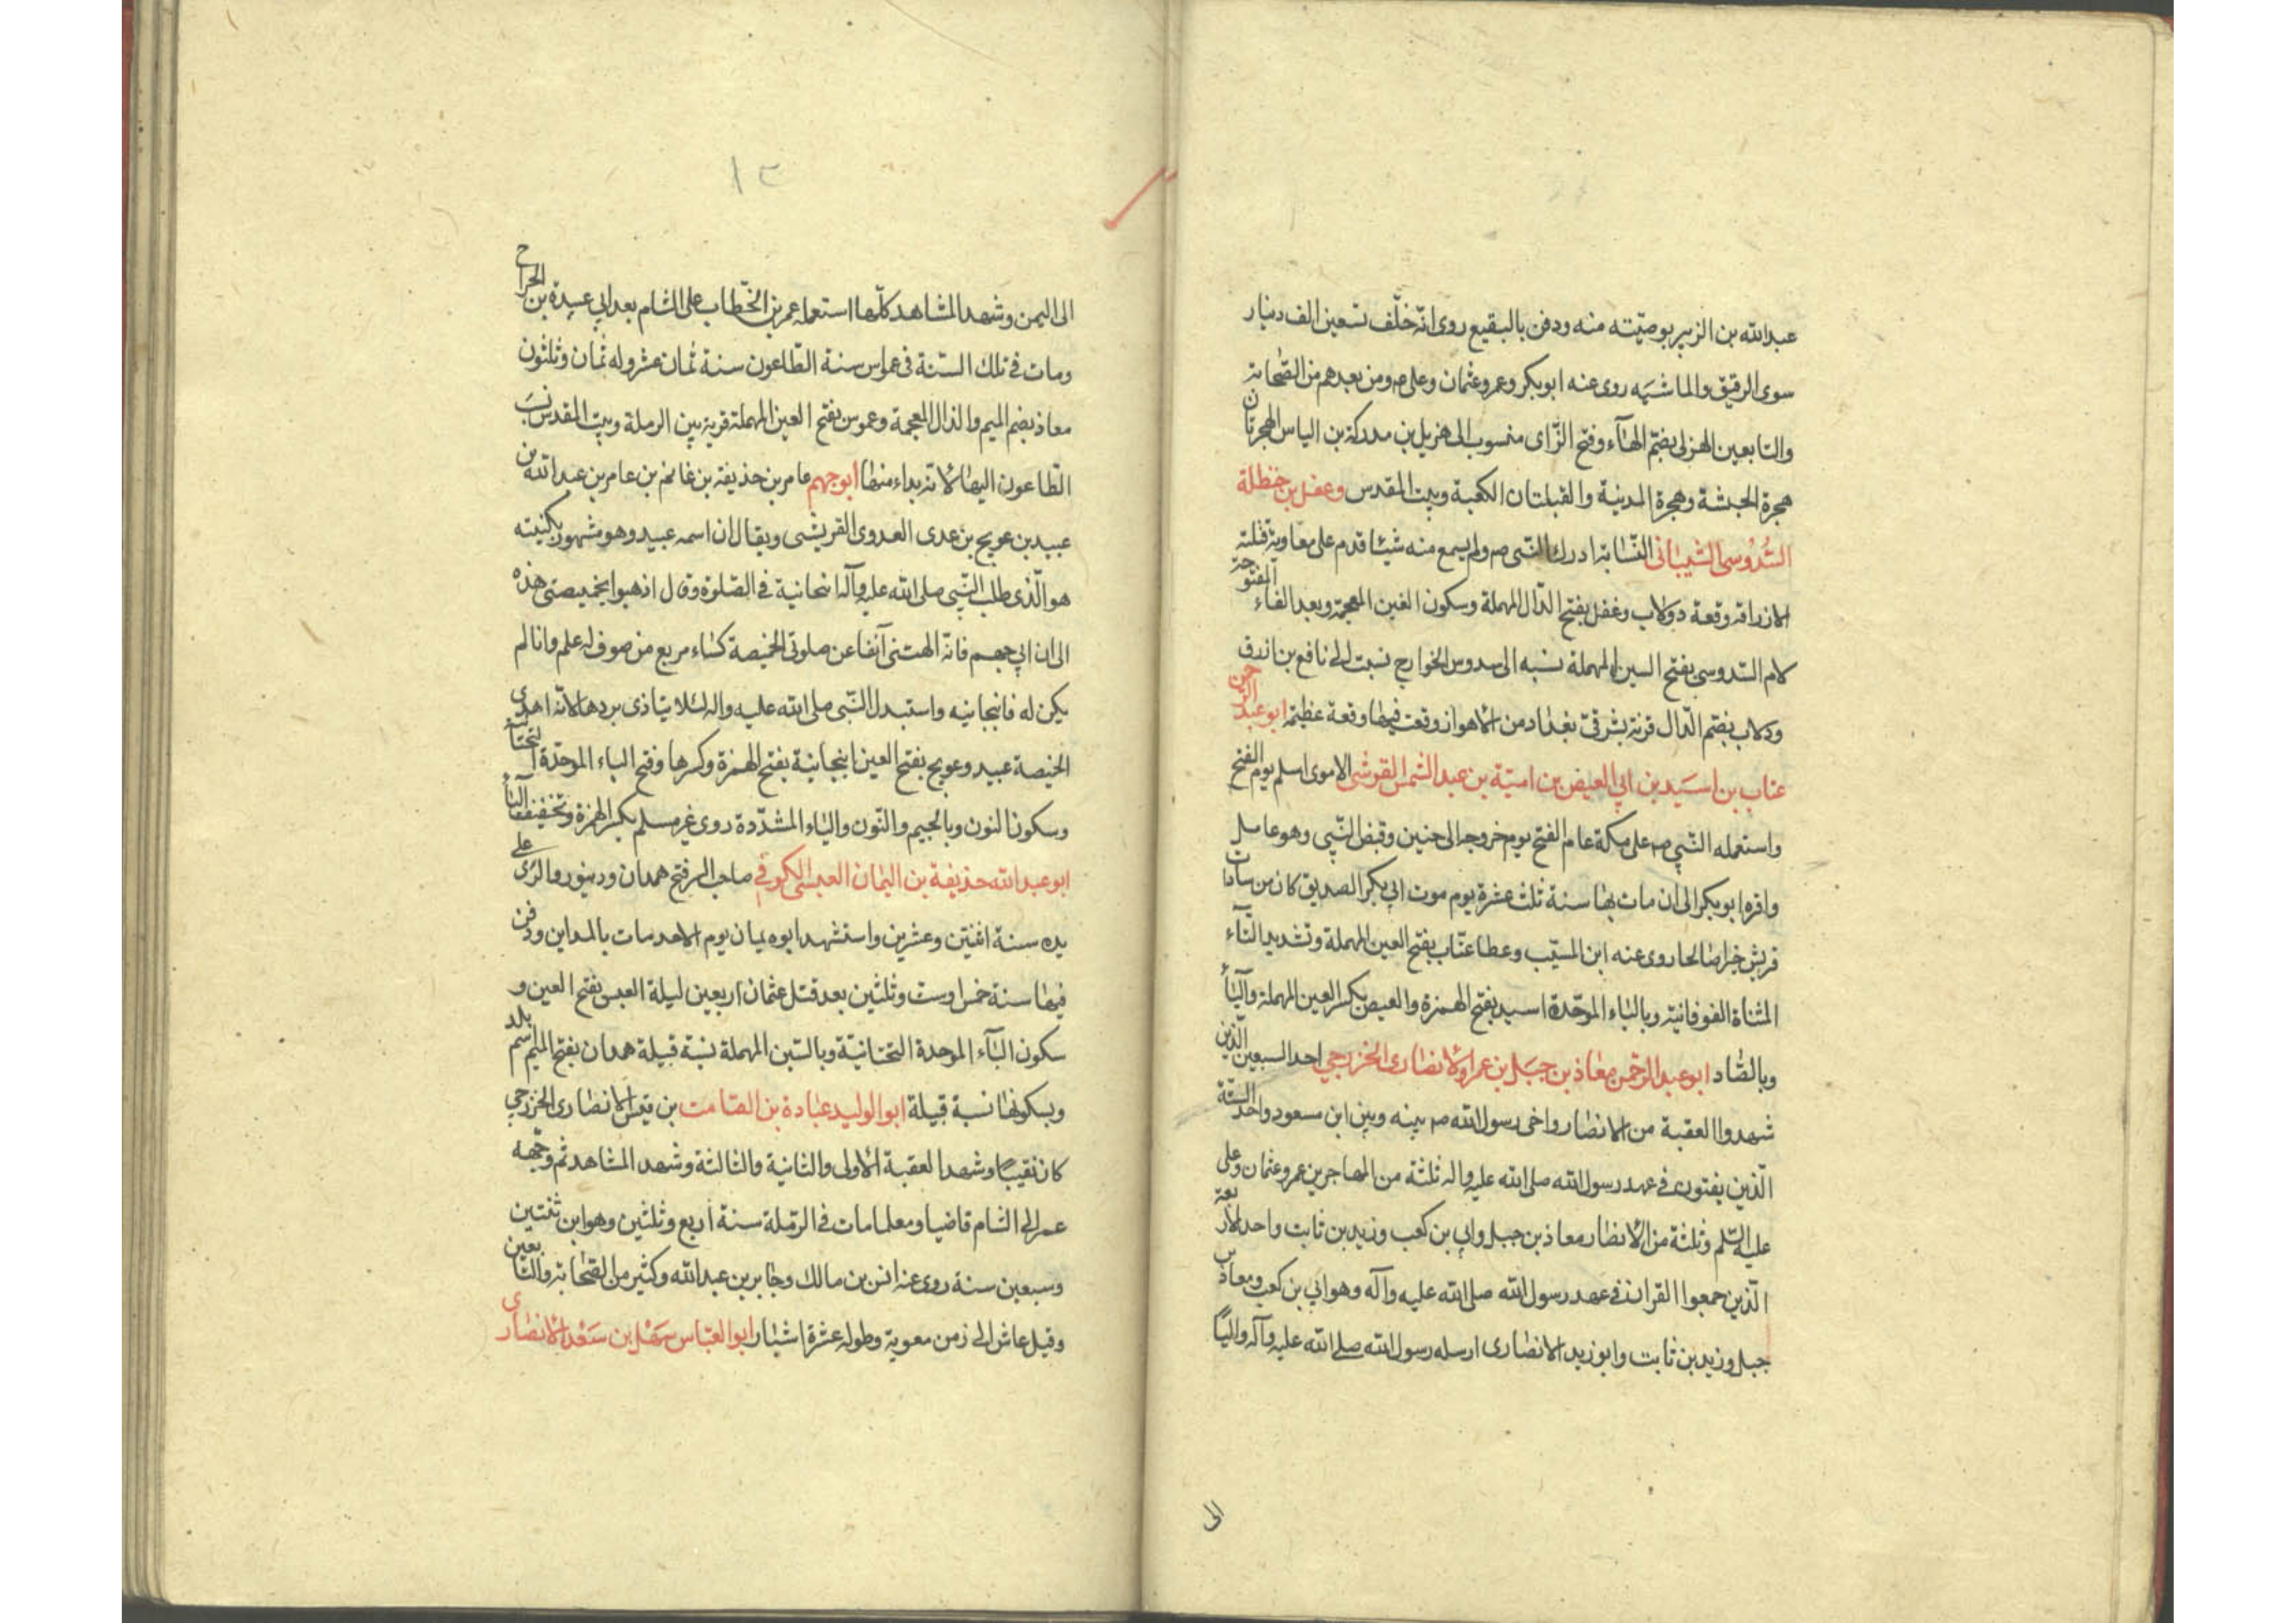 عبدالله بن الزبير بوصيّته منه ودفن بالبقيع روى انّه خلّف تسعين الف دينار
سوى الرقيق والماشيه روى عنه ابوبكر وعمر وعثمان وعلى ص ومن بعدهم من الصّحابة
والتابعين الهزلى بضمّ الهآء وفتح الزّاى منسوب الى هزيل بن مدركة بن الياس الهجرتان
هجرة الحبشة وهجرة المدينة والقبلتان الكعبة وبيت المقدس وغفل بن حنظلة
السَّدُوسى الشيبانى النّسّابة ادرك النّبى ص ولم يسمع منه شيئا قدم على معاوية قتلته
الازراقه وقعة دولاب وغفل بفتح الدّال المهملة وسكون الغين المعجمة وبعد الفاء المفتوحة
لام السّدوسى بفتح السين المهملة نسبه الى سدوس الخوارج نسبت الى نافع بن ازرق
ودلاب بضم الدّال قرية بشرقىّ بغداد من الاهواز وقعت فيها وقعة عظيمة ابو عبد الرّحمن
عتاب بن اسَيد بن ابي العيص بن اميّة بن عبد الشمس القرشى الاموى اسلم يوم الفتح
واستعمله النّبي ص على مكة عام الفتح يوم خروجه الى حنين وقبض النّبي وهو عامل
واقره ابوبكر الى ان مات بها سنة ثلث عشرة يوم موت ابي بكر الصديق كان من سادات
قريش خيرا صالحا روى عنه ابن المسيّب وعطا عتّاب بفتح العين المهملة وتشديد التّآء
المثناة الفوقانيّة وبالباء الموحّدة اسيد بفتح الهمزة والعيص بكسر العين المهملة واليآء
وبالصّاد ابو عبد الرّحمن معاذ بن جبَل بن عمرو الانصارى الخزرجي احد السبعين الّذين
شهدوا العقبة من الانصار واخى رسول الله ص بينه وبين ابن مسعود واحد الستّة
الّذين يفتون فى عهد رسول الله صلى الله عليه واله ثلثة من المهاجرين عمر وعثمان وعلى
عليه السّلم وثلثة من الانصار معاذ بن جبل وابي بن كعب وزيد بن ثابت واحد الاربعة
الّذين جمعوا القران فى عهد رسول الله صلى الله عليه وآله وهو ابي بن كعب ومعاذ بن
جبل وزيد بن ثابت وابو زيد الانصارى ارسله رسول الله صلى الله عليه وآله واليًا
الى
١٣
الى اليمن وشهد المشاهد كلّها استعمله عمر بن الخّطاب على الشام بعد ابي عبيدة بن الجراح
ومات فى تلك السّنة فى عمواس سنة الطّاعون سنة ثمان عشر وله ثمان وثلثون
معاذ بضم الميم والذال المعجمة وعموس بفتح العين المهملة قرية بين الرملة وبيت المقدس نسب
الطّاعون اليها لانّه بداء منها ابوجهم عامر بن حذيفة بن غانم بن عامر بن عبد الله بن
عبيد بن عويج بن عدى العدوى القريشى ويقال ان اسمه عبيد وهو مشهور بكنيته
هو الّذى طلب النّبي صلى الله عليه وآله انبجانية فى الصّلوة وقال اذهبوا بخميصتى هذه
الى ابي جهم فانّه الهتنى آنفا عن صلوتى الخميصة كساء مربع من صوف له علم وانا لم
يكن له فانبجانيه واستبدل النّبي صلى الله عليه واله لئلا يتاذى بردها لانّه اهدى
الخميصة عبيد وعويج بفتح العين انبجانية بفتح الهمزة وكسرها وفتح الباء الموحدّة التّحتا
وسكون النون وبالجيم والنّون والياء المشدّدة روى غير مسلم بكسر الهمزة وتخفيف اليآء
ابو عبد الله حذيفة بن اليمان العبسى الكوفي صاحب السر فتح همدان ودينور والرّى على
يده سنة اثنتين وعشرين واستشهد ابوه يمان يوم الاحد مات بالمداين ودفن
فيها سنة خمس اوست وثلثين بعد قتل عثمان اربعين ليلة العبس بفتح العين و
سكون البآء الموحدة التحتانيّة وبالسّين المهملة نسبة قبيلة همدان بفتح الميم اسم بلد
وبسكونها نسبة قبيلة ابو الوليد عبادة بن الصّامت بن قيس الانصارى الخزرجي
كان نقيبًا وشهد العقبة الاولى والثانية والثالثة وشهد المشاهد ثم وجّهه
عمر الى الشام قاضيا ومعلما مات فى الرّملة سنة اربع وثلثين وهو ابن ثنتين
وسبعين سنة روى عنه انس بن مالك وجابر بن عبدالله وكثير من الصّحابة والتّابعين
وقيل عاش الى زمن معوية وطوله عشرة اشبار ابو العبّاس سَهْل بن سَعْد الانصارى